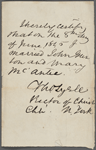 I hereby certify
that on the 8th day
of June 1865 I
married John Gun
ton and Mary
McAntee
Rector of Christ
Chh. N. York